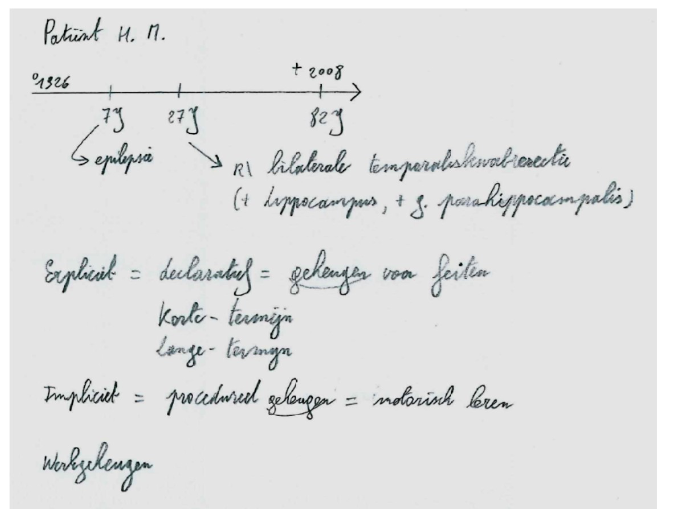 Patiënt H. M.
°1926
+ 2008
7J 27J 82J
epilepsie
R/ bilaterale temporaliskwabresectie
(+ hippocampus, + g. parahippocampalis)
Expliciet = declaratief = geheugen voor feiten
Korte-termijn
Lange-termijn
Impliciet = procedureel geheugen = motorisch leren
Werkgeheugen